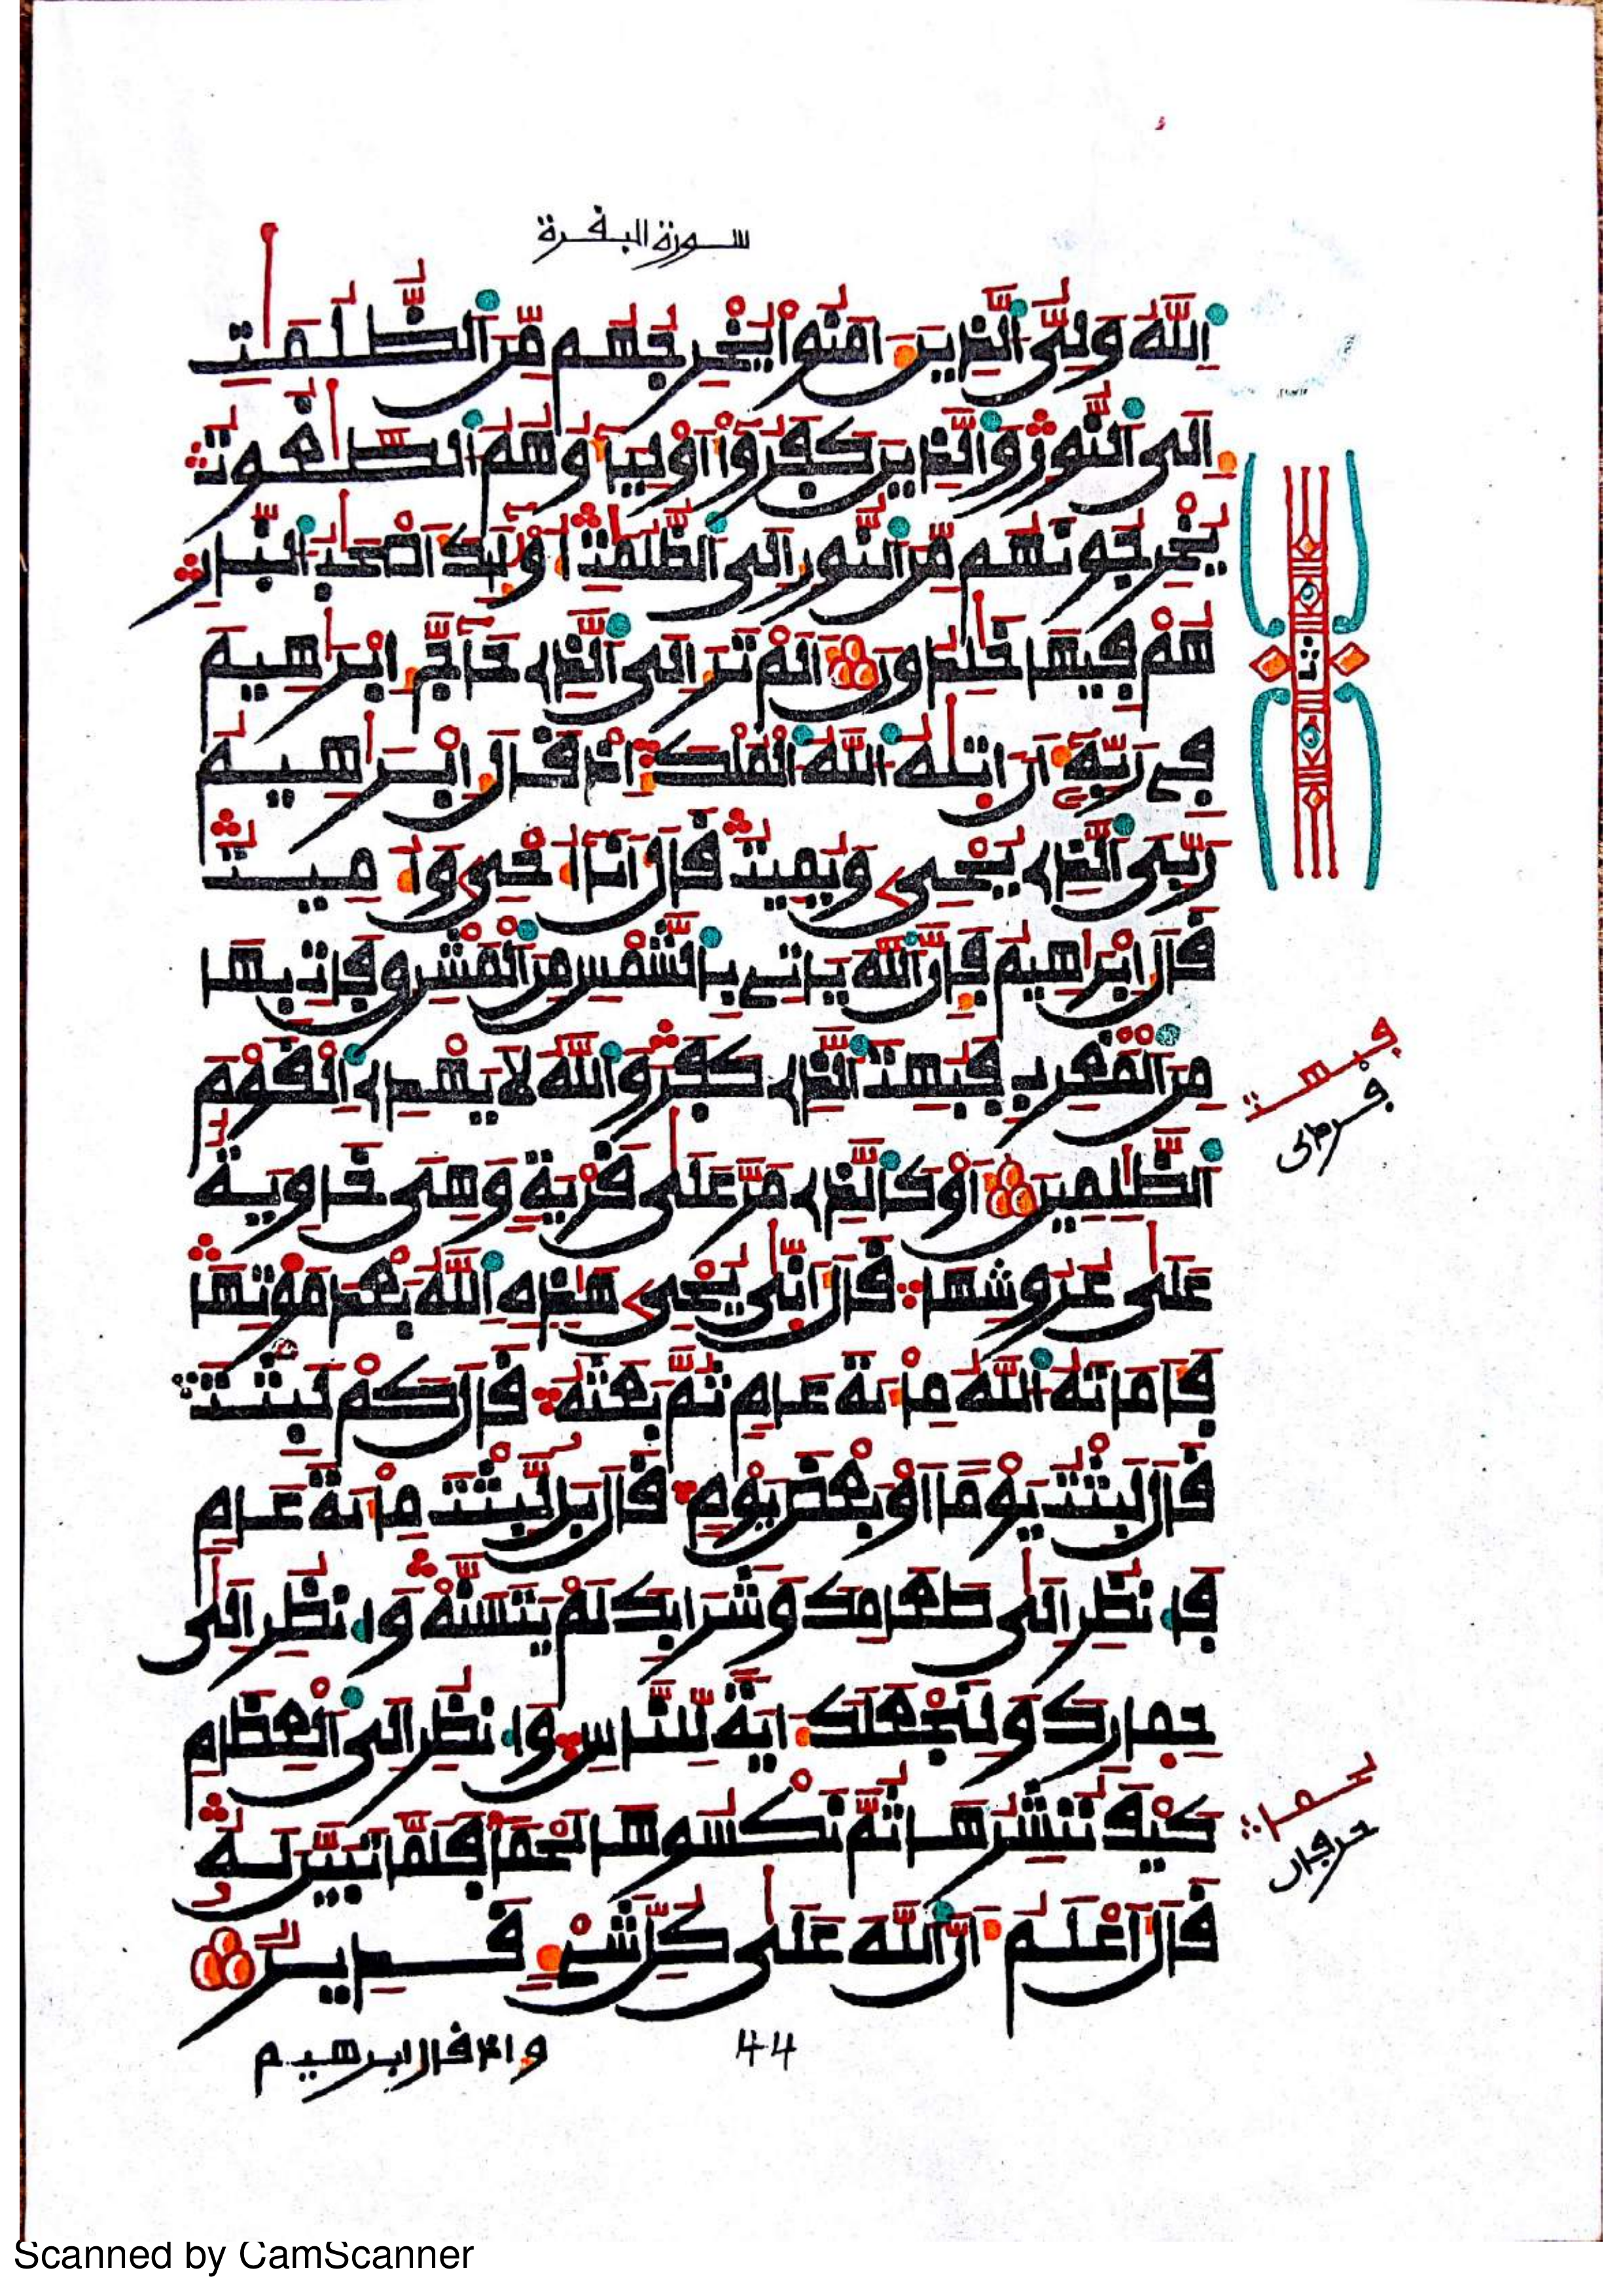 سورة البقرة
اِللَّهُ وَلِيُّ اُلذِينَ ءَامَنُواْ يُخْرِجُهُم مِّنَ اَلظُّلُمَٰتِ
إِلَى اَلنُّورِ وَالذِينَ كَفَرُوٓاْ أَوْلِيَآؤُهُمُ اُلطَّٰغُوتُ
يُخْرِجُونَهُم مِّنَ اَلنُّورِ إِلَى اَلظُّلُمَٰتِ أُوْلَٰٓئِكَ أَصْحَٰبُ اُلنّ۪ارِ
هُمْ فِيهَا خَٰلِدُونَ أَلَمْ تَرَ إِلَى اَلذِے حَآجَّ إِبْرَٰهِيمَ
فِے رَبِّهِۦٓ أَنَ اٰت۪يٰهُ اُللَّهُ اُلْمُلْكَ إِذْ قَالَ إِبْرَٰهِيمُ
رَبِّيَ اَلذِے يُحْيِۦ وَيُمِيتُ قَالَ أَنَآ أُحْيِۦ وَأُمِيتُ
قَالَ إِبْرَٰهِيمُ فَإِنَّ اَللَّهَ يَاتِے بِالشَّمْسِ مِنَ اَلْمَشْرِقِ فَاتِ بِهَا
مِنَ اَلْمَغْرِبِ فَبُهِتَ اَلذِے كَفَرَ وَاللَّهُ لَا يَهْدِے اِلْقَوْمَ
اَلظَّٰلِمِينَ أَوْ كَالذِے مَرَّ عَلَىٰ قَرْيَةٍ وَهِيَ خَاوِيَةٌ
عَلَىٰ عُرُوشِهَا قَالَ أَنّ۪ىٰ يُحْيِۦ هَٰذِهِ اِللَّهُ بَعْدَ مَوْتِهَا
فَأَمَاتَهُ اُللَّهُ مِاْئَةَ عَامٍ ثُمَّ بَعَثَهُۥ قَالَ كَمْ لَبِثْتَ
قَالَ لَبِثْتُ يَوْماً أَوْ بَعْضَ يَوْمٍ قَالَ بَل لَّبِثْتَ مِاْئَةَ عَامٍ
فَانظُرِ اِلَىٰ طَعَامِكَ وَشَرَابِكَ لَمْ يَتَسَنَّهْ وَانظُرِ اِلَىٰ
حِمَارِكَ وَلِنَجْعَلَكَ ءَايَةً لِّلنَّاسِ وَانظُرِ اِلَى اَلْعِظَامِ
كَيْفَ نُنشِرُهَا ثُمَّ نَكْسُوهَا لَحْماً فَلَمَّا تَبَيَّنَ لَهُۥ
قَالَ أَعْلَمُ أَنَّ اَللَّهَ عَلَىٰ كُلِّ شَےْءٍ قَدِيرٌ
ثمن
44
وإذ قال إبرهيم
Scanned by CamScanner